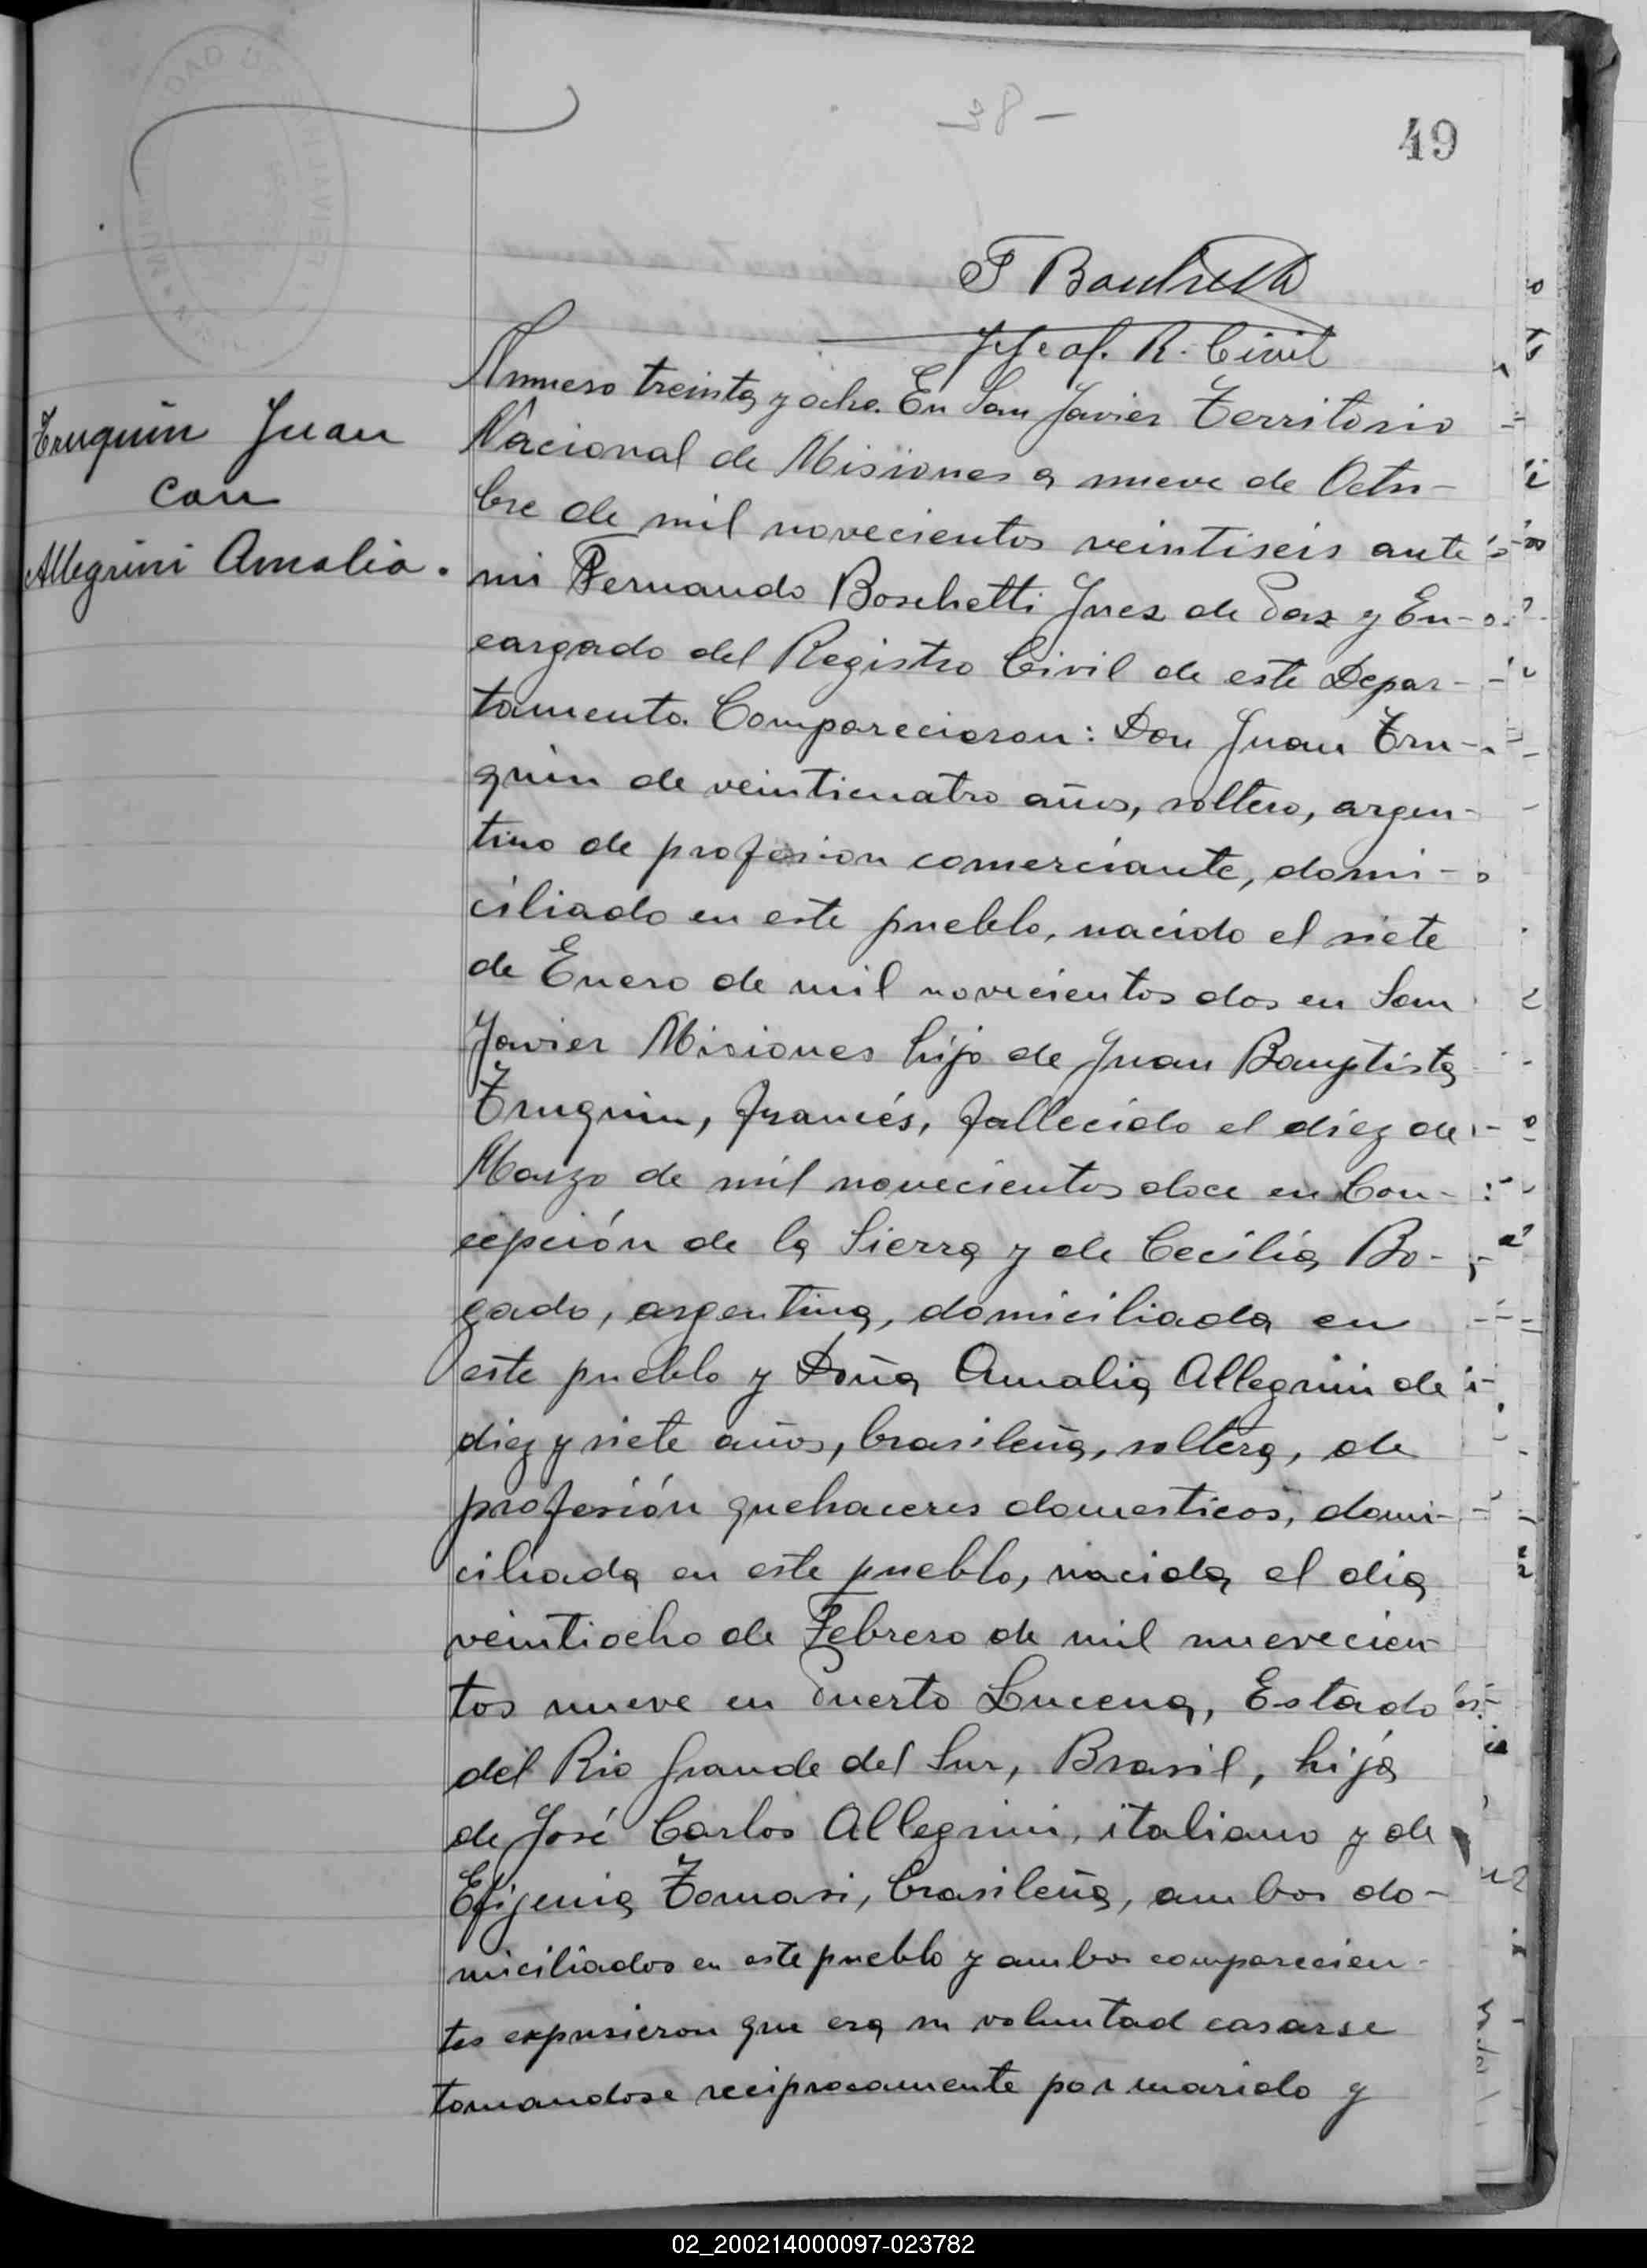 49
F Boschetti
Jefe of. R. Civil
Truquin Juan
con
Allegrini Amalia.
Numero treinta y ocho. En San Javier Territorio
Nacional de Misiones a nueve de Octu-
bre de mil novecientos veintiseis ante
mi Fernando Boschetti Juez de Paz y En-
cargado del Registro Civil de este Depar-
tamento. Comparecieron: Don Juan Tru-
quin de veinticuatro años, soltero, argen-
tino de profesion comerciante, domi-
ciliado en este pueblo, nacido el siete
de Enero de mil novecientos dos en San
Javier Misiones hijo de Juan Bauptista
Truquin, francés, fallecido el diez de
Marzo de mil novecientos doce en Con-
cepción de la Sierra y de Cecilia Bo-
gado, argentina, domiciliada en
este pueblo y Doña Amalia Allegrini de
diez y siete años, brasileña, soltera, de
profesión quehaceres domesticos, domi-
ciliada en este pueblo, nacida el dia
veintiocho de Febrero de mil nuevecien-
tos nueve en Puerto Lucena, Estado
del Rio Grande del Sur, Brasil, hija
de José Carlos Allegrini, italiano y de
Efigenia Tomasi, brasileña, ambos do-
miciliados en este pueblo y ambos comparecien-
tes expusieron que era su voluntad casarse
tomandose reciprocamente por marido y
02_200214000097-023782